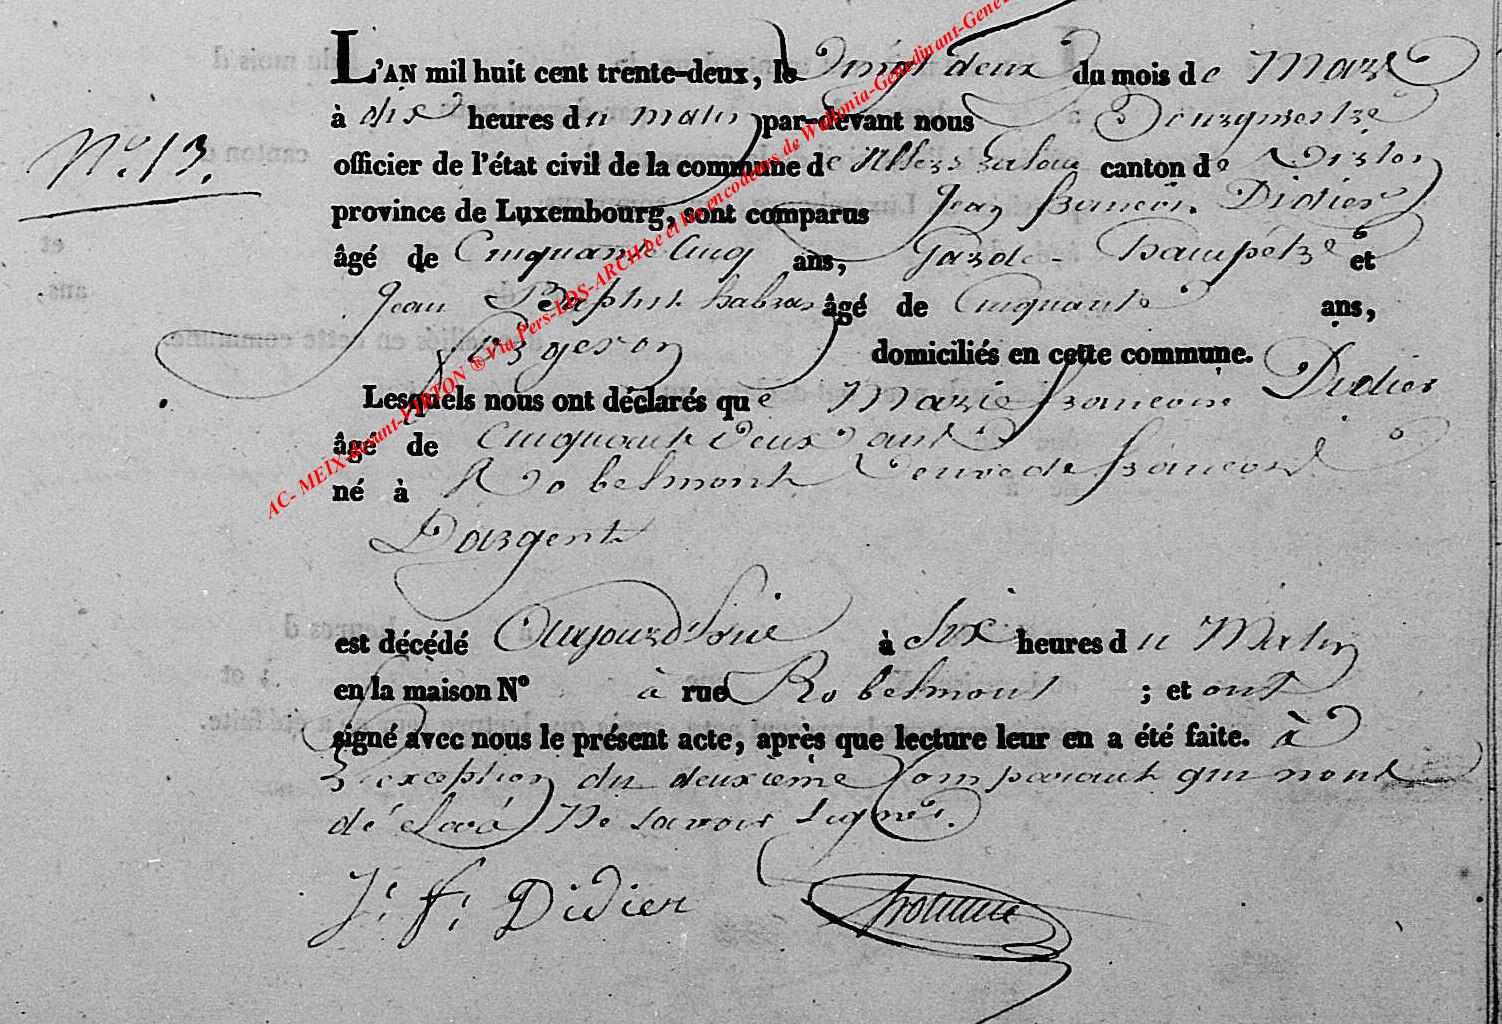 L'AN mil huit cent trente-deux, le vingt deux du mois de Mars
N° 13.
à dix heures du matin par-devant nous Bourgmestre
officier de l'état civil de la commune de Villers-la-loue canton de Virton
province de Luxembourg, sont comparus Jean francois Didier
âgé de Cinquante Cinq ans, Garde-Champêtre et
Jean Baptist âgé de Cinquante ans,
forgeron domiciliés en cette commune.
Lesquels nous ont déclarés que Marie francoise Didier
âgé de Cinquante deux ans
né à Robelmont Veuve de francois
Dargent
est décédé Aujourd'huie à Six heures du Matin
en la maison N° à rue Robelmont ; et ont
signé avec nous le présent acte, après que lecture leur en a été faite. à
l'exception du deuxième Comparant qui nous
dé claré Ne savoir signer.
J. f. Didier
AC- MEIX-devant-VIRTON ® Via Pers-LDS-ARCH.be et les encodeurs de Wallonia-Genedinant-Gene